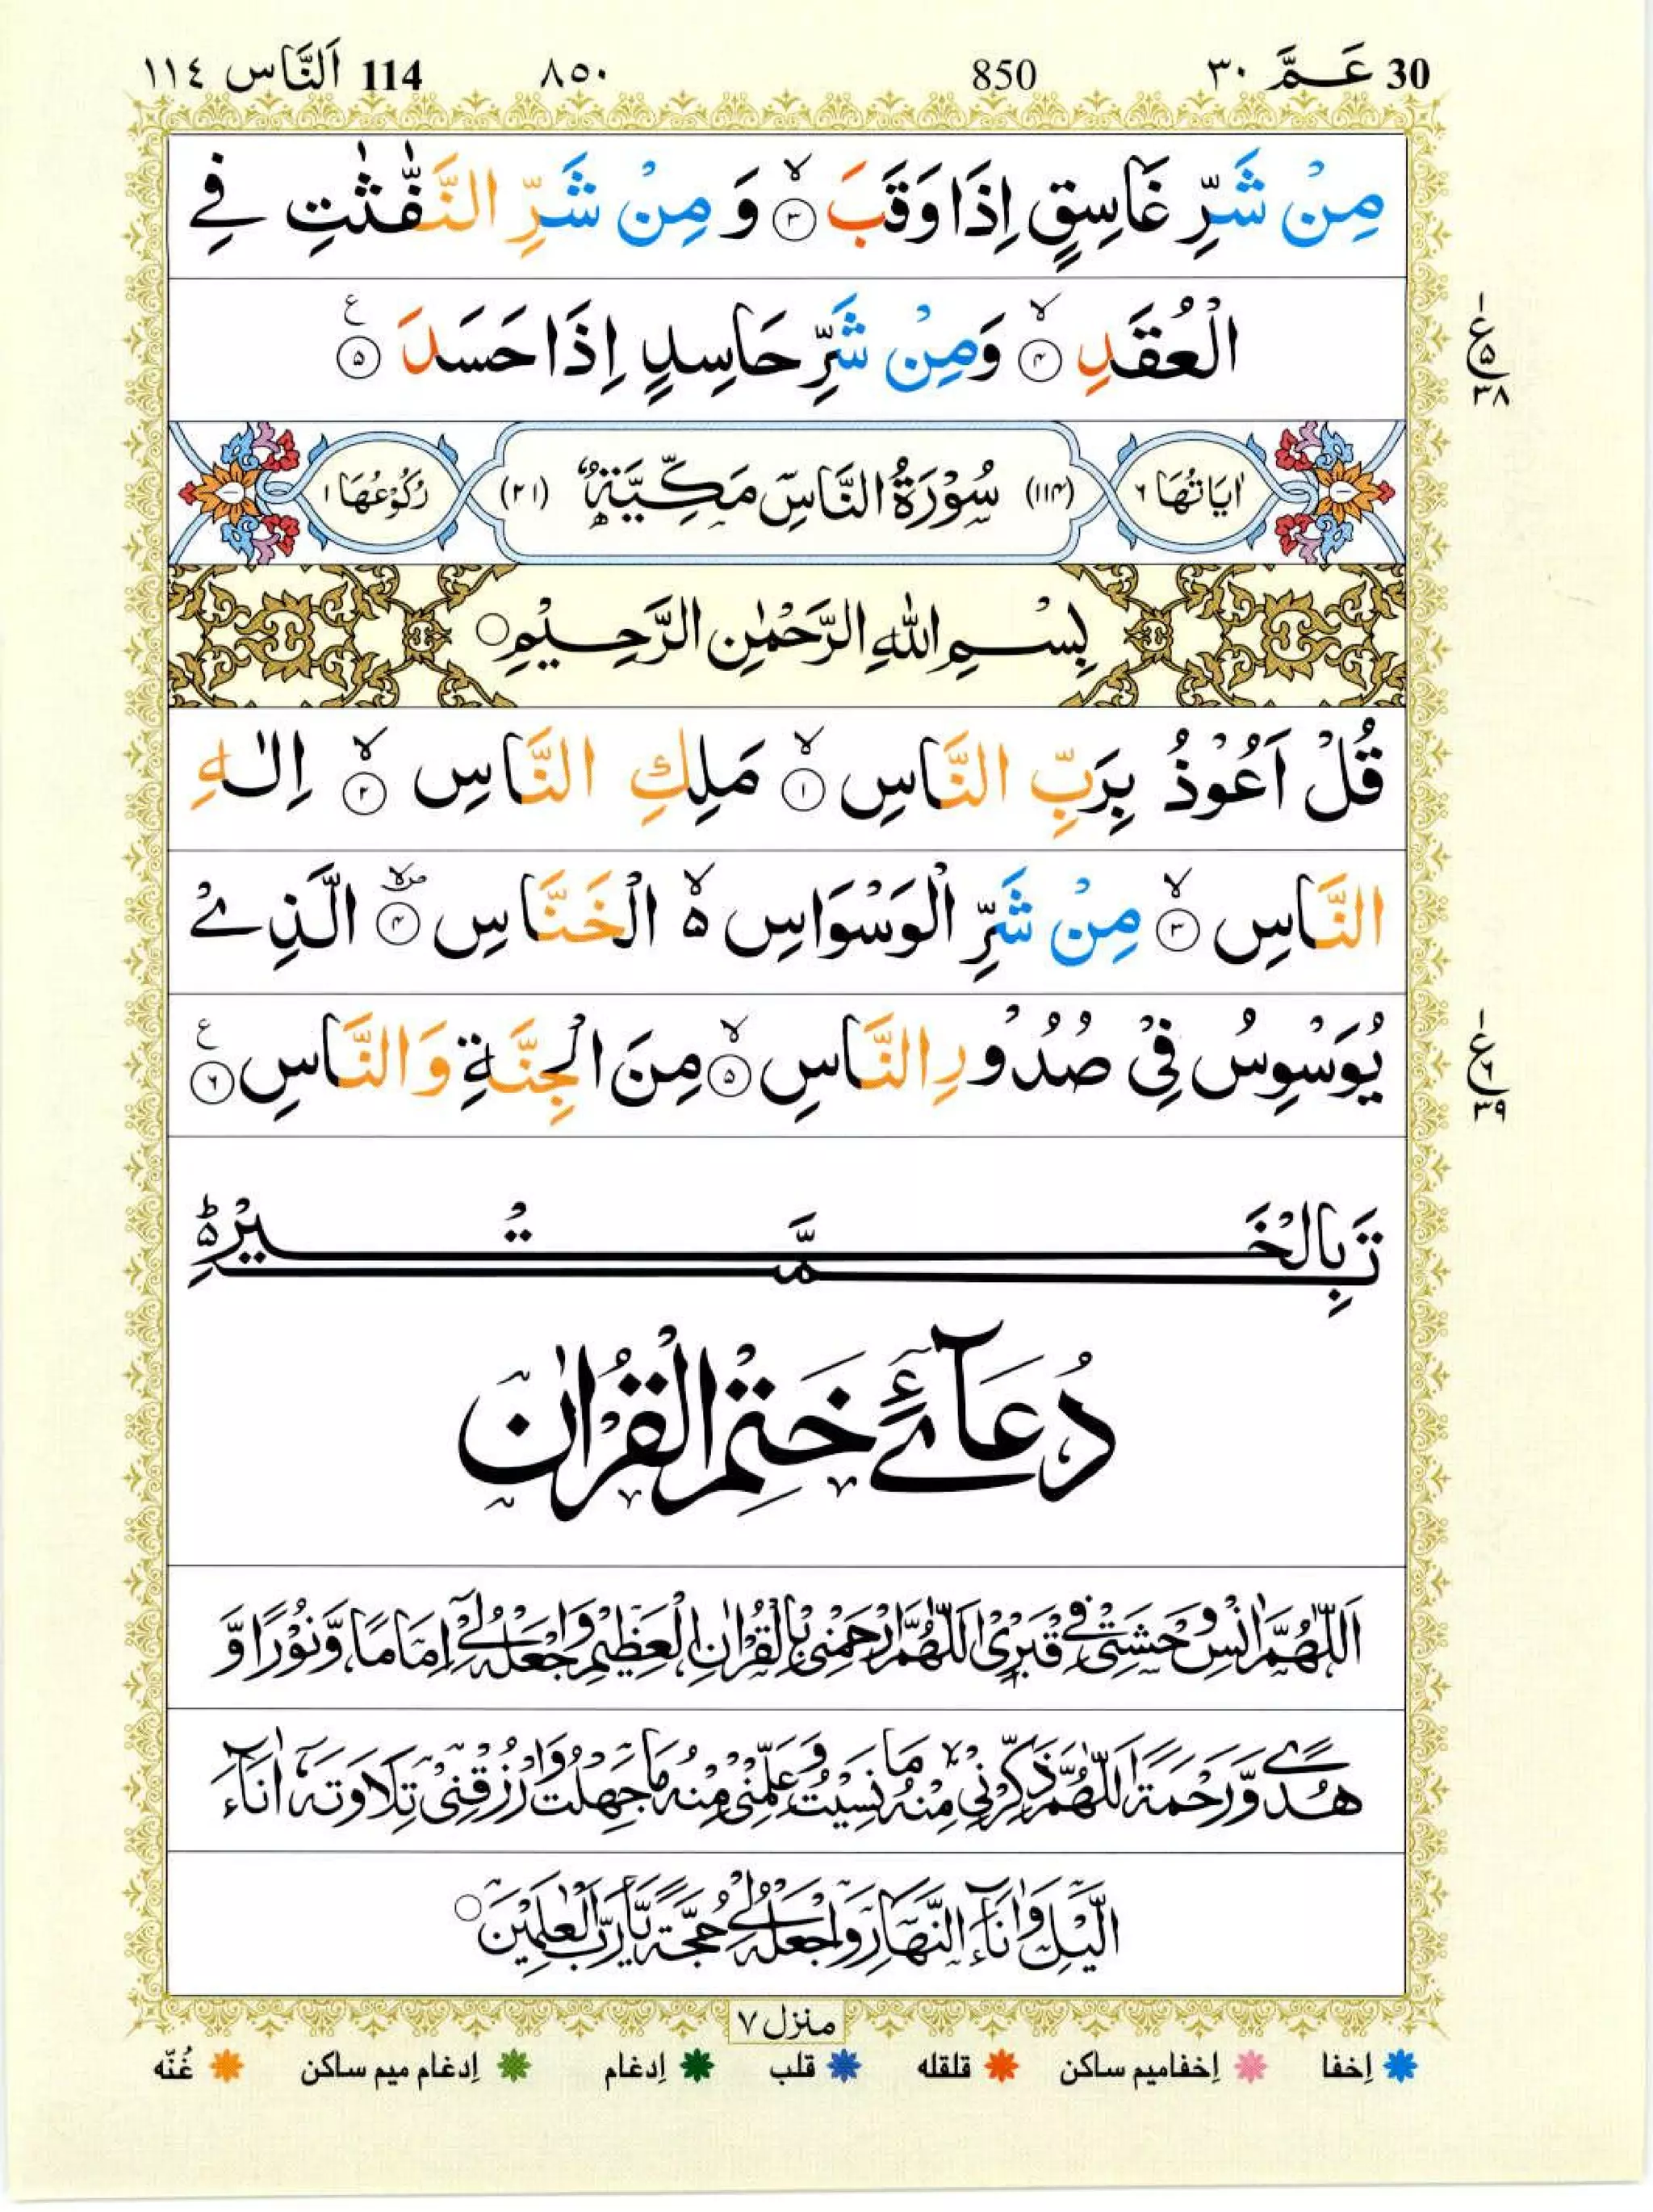 30 عَـمَّ ٣٠ 850 ٨٥٠ 114 اَلنَّاس ١١٤
مِنْ شَرِّ غَاسِقٍ اِذَا وَقَبَ ۙ﴿۳﴾ وَ مِنْ شَرِّ النَّفّٰثٰتِ فِي
الْعُقَدِ ۙ﴿۴﴾ وَمِنْ شَرِّ حَاسِدٍ اِذَا حَسَدَ ﴿۵﴾ ع
ع ۱ ۵ ۳۸
اٰيَاتُهَا ۶ (۱۱۴) سُوْرَةُ النَّاسِ مَكِّيَّةٌ (۲۱) رُكُوْعُهَا ۱
بِسْمِ اللّٰهِ الرَّحْمٰنِ الرَّحِيْمِ ○
قُلْ اَعُوْذُ بِرَبِّ النَّاسِ ۙ﴿۱﴾ مَلِكِ النَّاسِ ۙ﴿۲﴾ اِلٰهِ
النَّاسِ ۙ﴿۳﴾ مِنْ شَرِّ الْوَسْوَاسِ ۙ۬ الْخَنَّاسِ ﴿۴﴾ صلا الَّذِيْ
يُوَسْوِسُ فِيْ صُدُوْرِ النَّاسِ ۙ﴿۵﴾ مِنَ الْجِنَّةِ وَالنَّاسِ ﴿۶﴾ ع
ع ۱ ۶ ۳۹
تَمَّتْ بِالْخَيْرِ ؕ
دُعَآئے خَتْمِ الْقُرْاٰن
اَللّٰهُمَّ اٰنِسْ وَحْشَتِيْ فِيْ قَبْرِيْ اَللّٰهُمَّ ارْحَمْنِيْ بِالْقُرْاٰنِ الْعَظِيْمِ وَاجْعَلْهُ لِيْٓ اِمَامًا وَّنُوْرًا وَّ
هُدًى وَّرَحْمَةً اَللّٰهُمَّ ذَكِّرْنِيْ مِنْهُ مَا نَسِيْتُ وَعَلِّمْنِيْ مِنْهُ مَا جَهِلْتُ وَارْزُقْنِيْ تِلَاوَتَهٗٓ اٰنَآءَ
الَّيْلِ وَاٰنَآءَ النَّهَارِ وَاجْعَلْهُ لِيْ حُجَّةً يَّا رَبَّ الْعٰلَمِيْنَ ○
منزل ۷
إخفا إخفاميم ساكن قلقله قلب إدغام إدغام ميم ساكن غُنّه